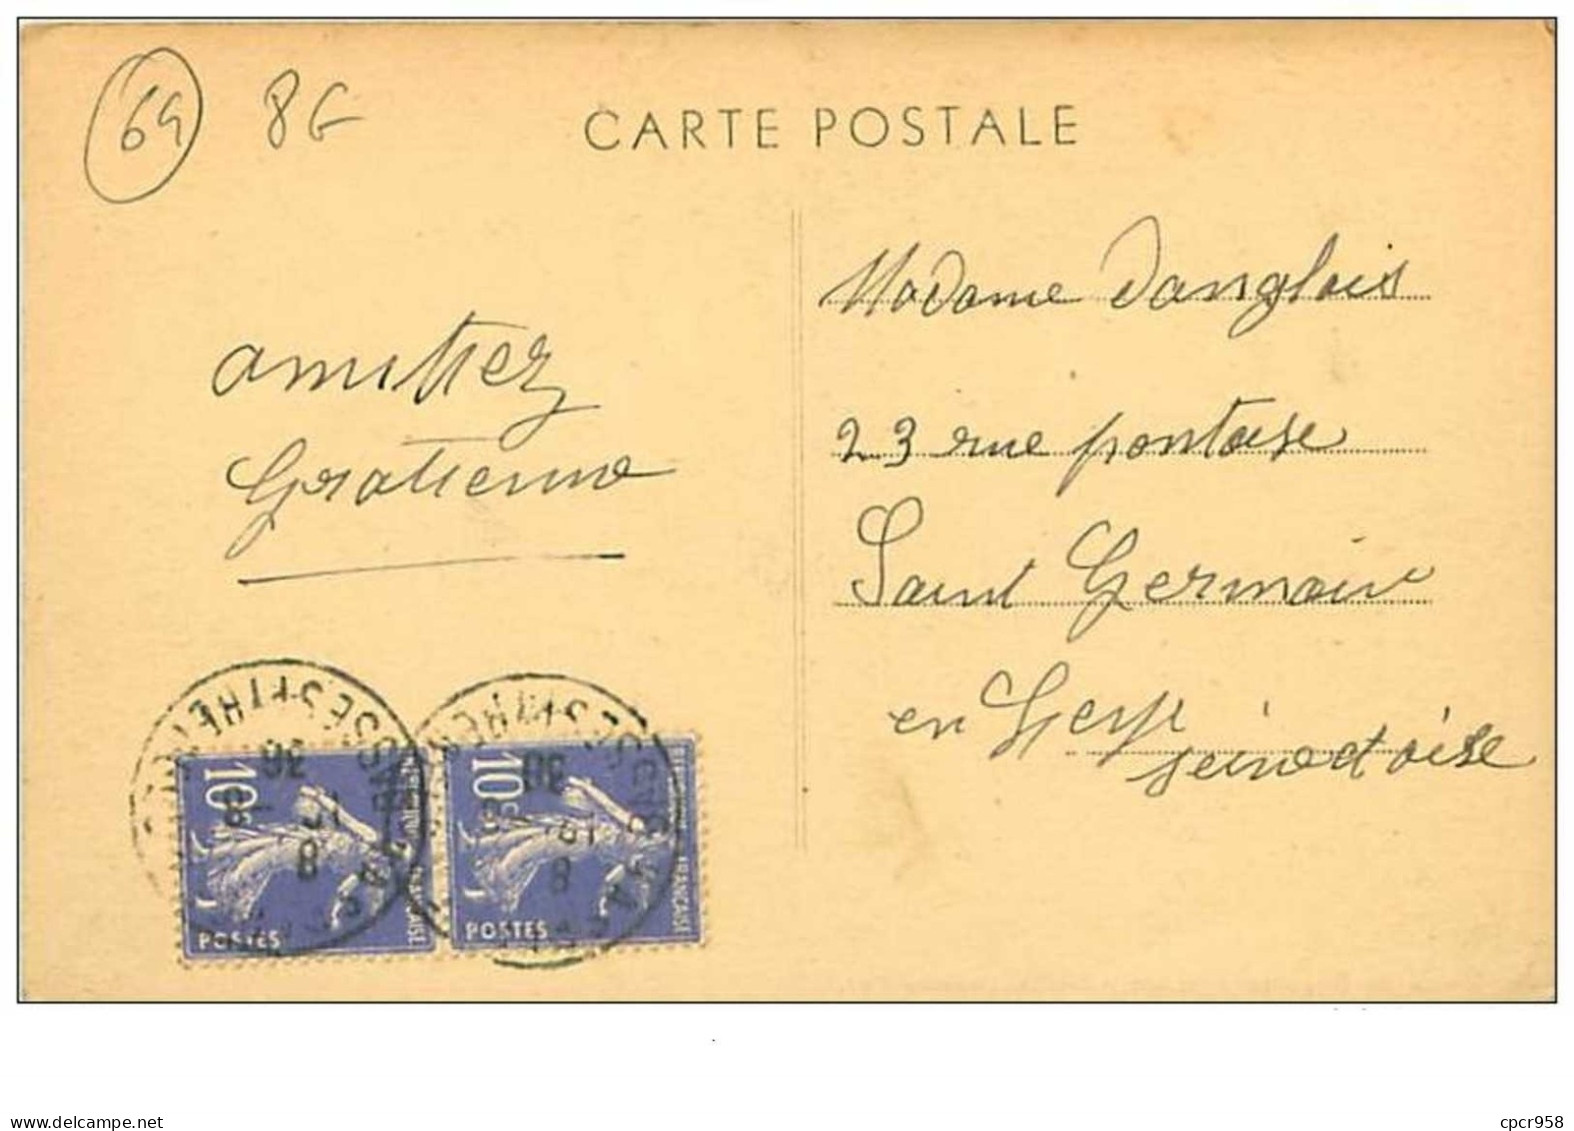 64 8G
CARTE POSTALE
amittiez
Gratienne
Madame Danglais
23 rue pontoise
Saint Germain
en Leye
seine et oise
10c
POSTES
10c
POSTES
FRANÇAISE
www.delcampe.net
cpcr958